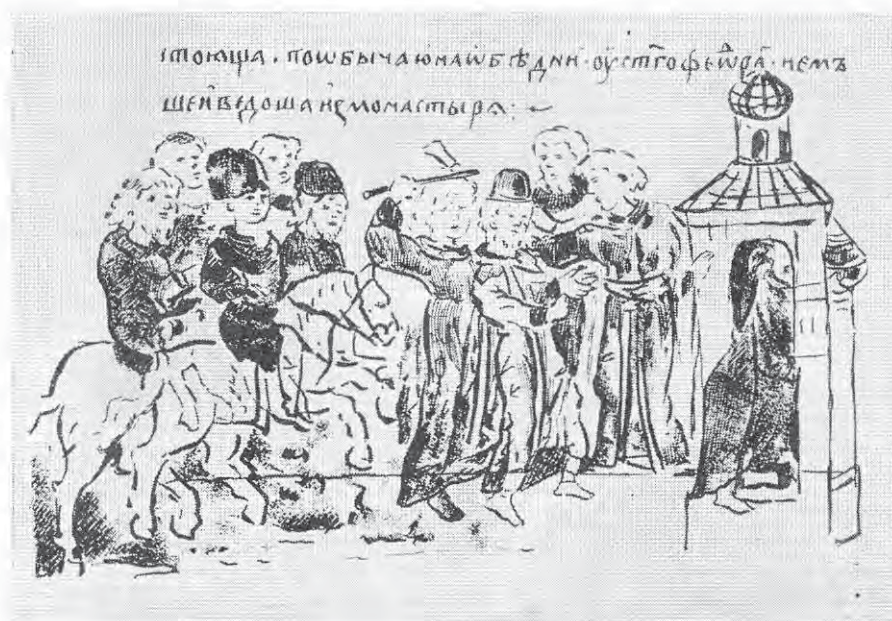 стоюща . по ѡбычаю на ѡбѣдни · оу стг҃о феѡⷣра · и емъ
ше и ведоша из монастырѧ :~